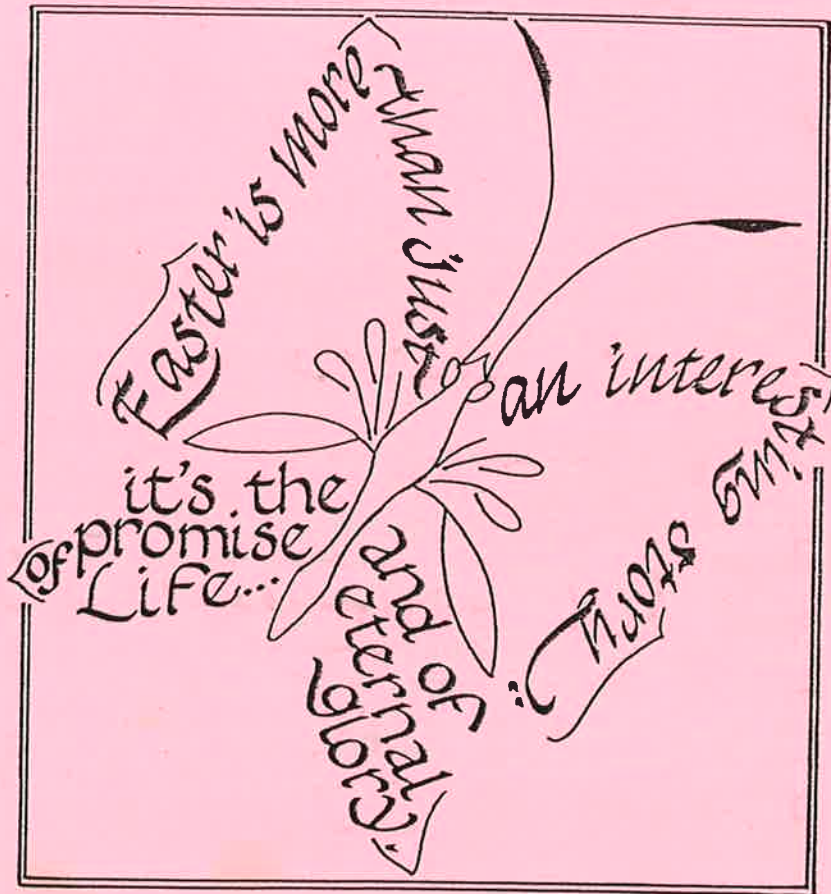 Easter is more
than just
an interest
ing story;
it's the
promise
of Life...
and of
eternal
glory.